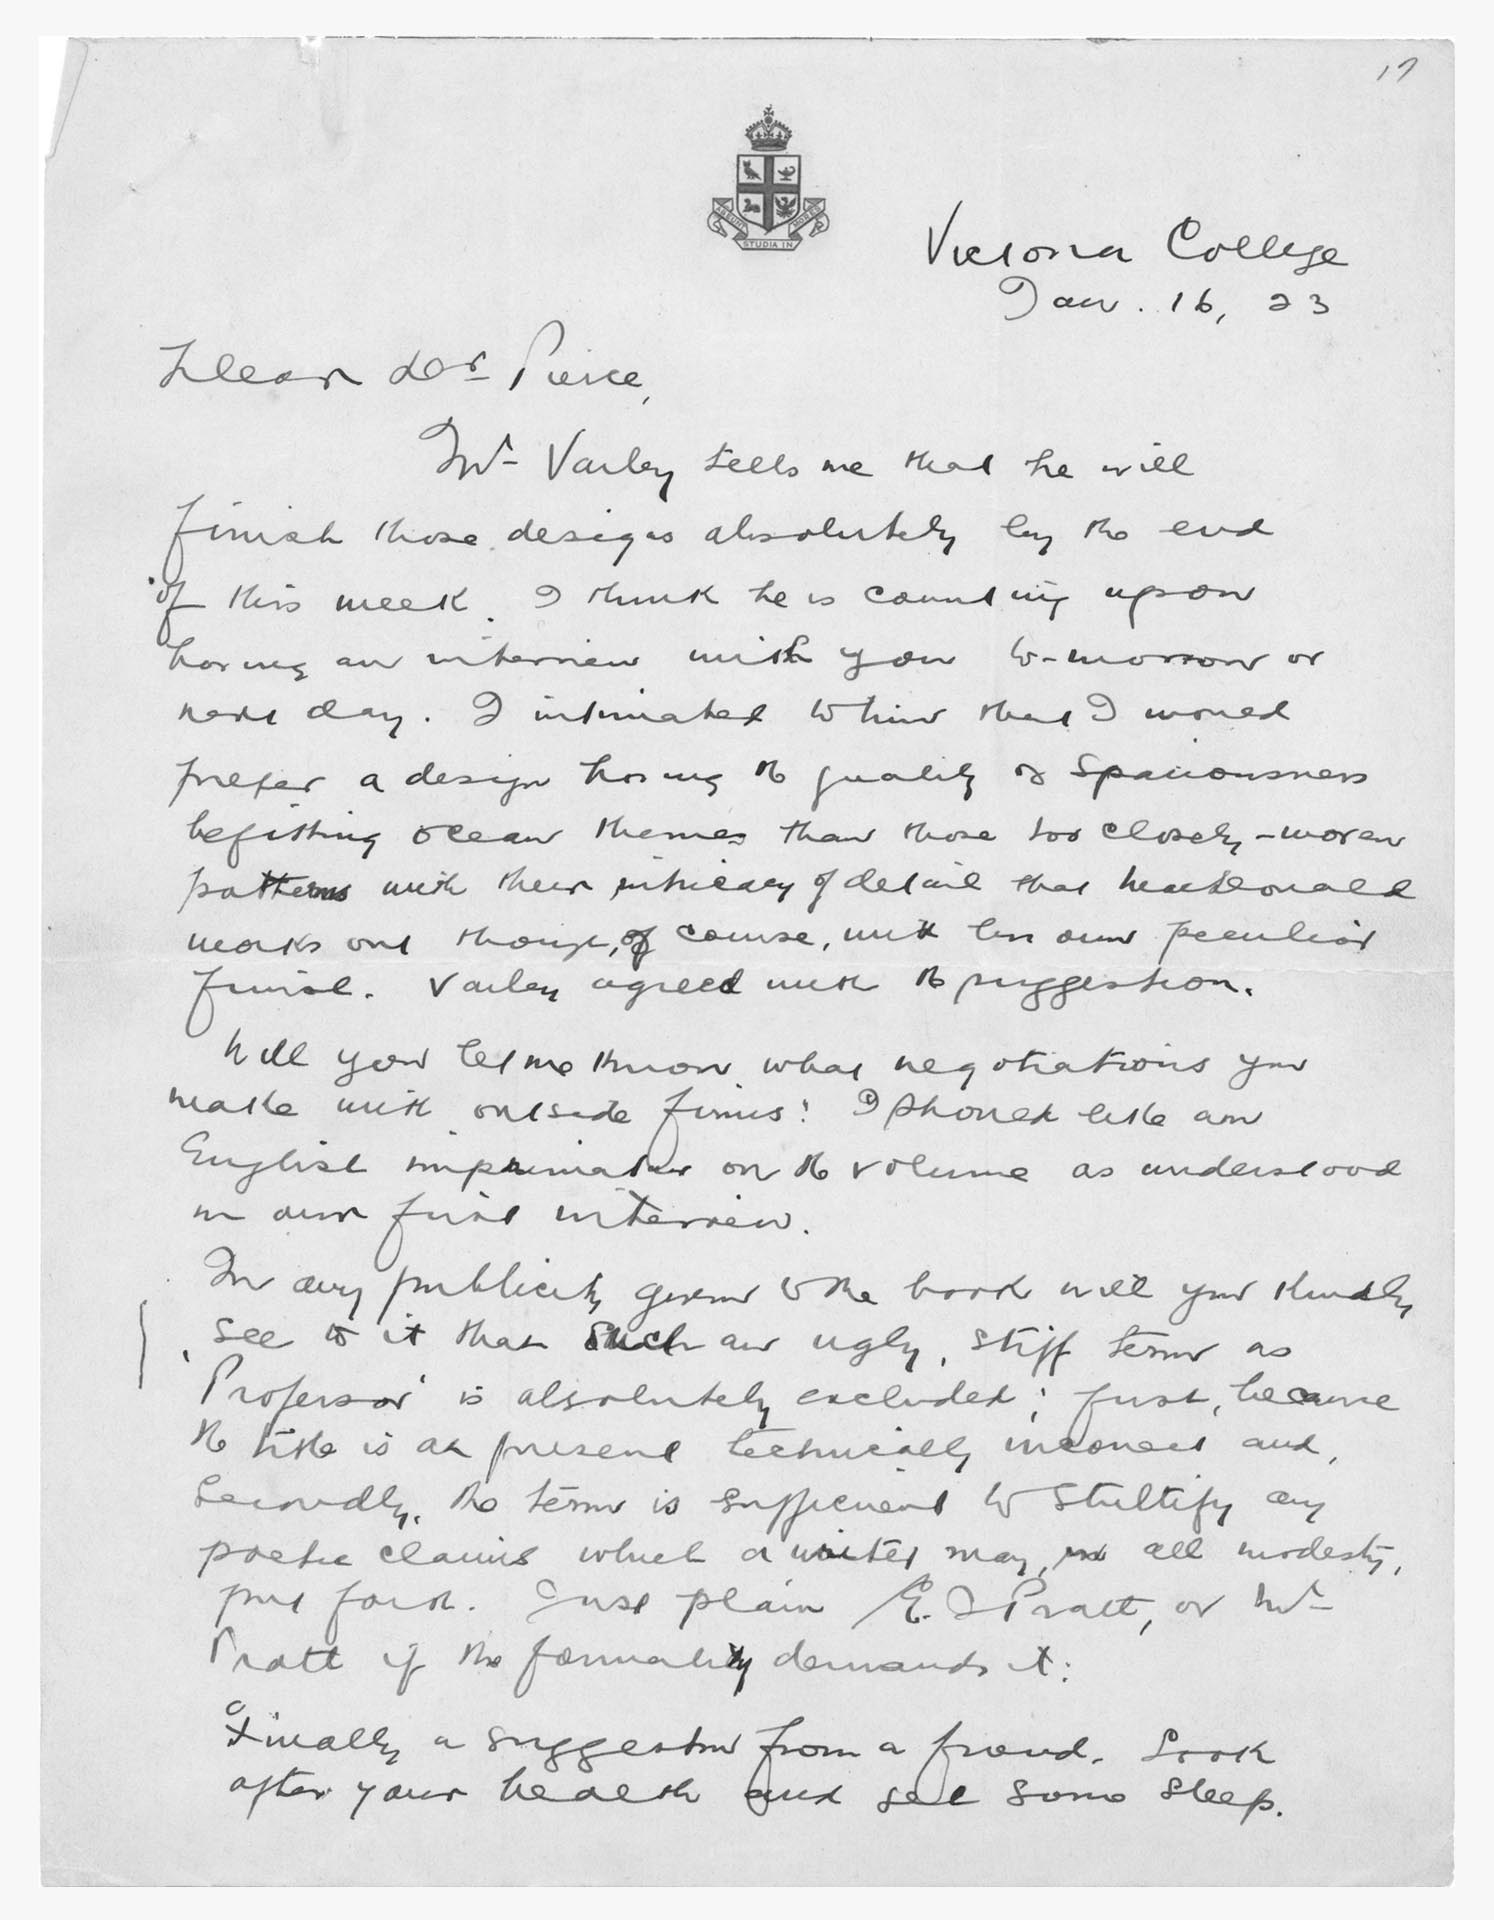 17
ABEUNT STUDIA IN MORES
Victoria College
Jan. 16, 23
Dear Dr Pierce,
Mr Varley tells me that he will
finish those designs absolutely by the end
of this week. I think he is counting upon
having an interview with you to-morrow or
next day. I intimated to him that I would
prefer a design having the quality of spaciousness
befitting ocean themes than those too closely-woven
patterns with their intricacy of detail that MacDonald
works out though, of course, with his own peculiar
finish. Varley agreed with the suggestion.
Will you let me know what negotiations you
make with outside firms! I should like an
English imprimatur on the volume as understood
in our first interview.
In any publicity given to the book will you kindly
see to it that such an ugly, stiff term as
'Professor' is absolutely excluded; first, because
the title is at present technically incorrect and,
secondly, the term is sufficient to stultify any
poetic claims which a writer may, in all modesty,
put forth. Just plain E. J Pratt, or Mr
Pratt if the formality demands it:
Finally a suggestion from a friend. Look
after your health and get some sleep.